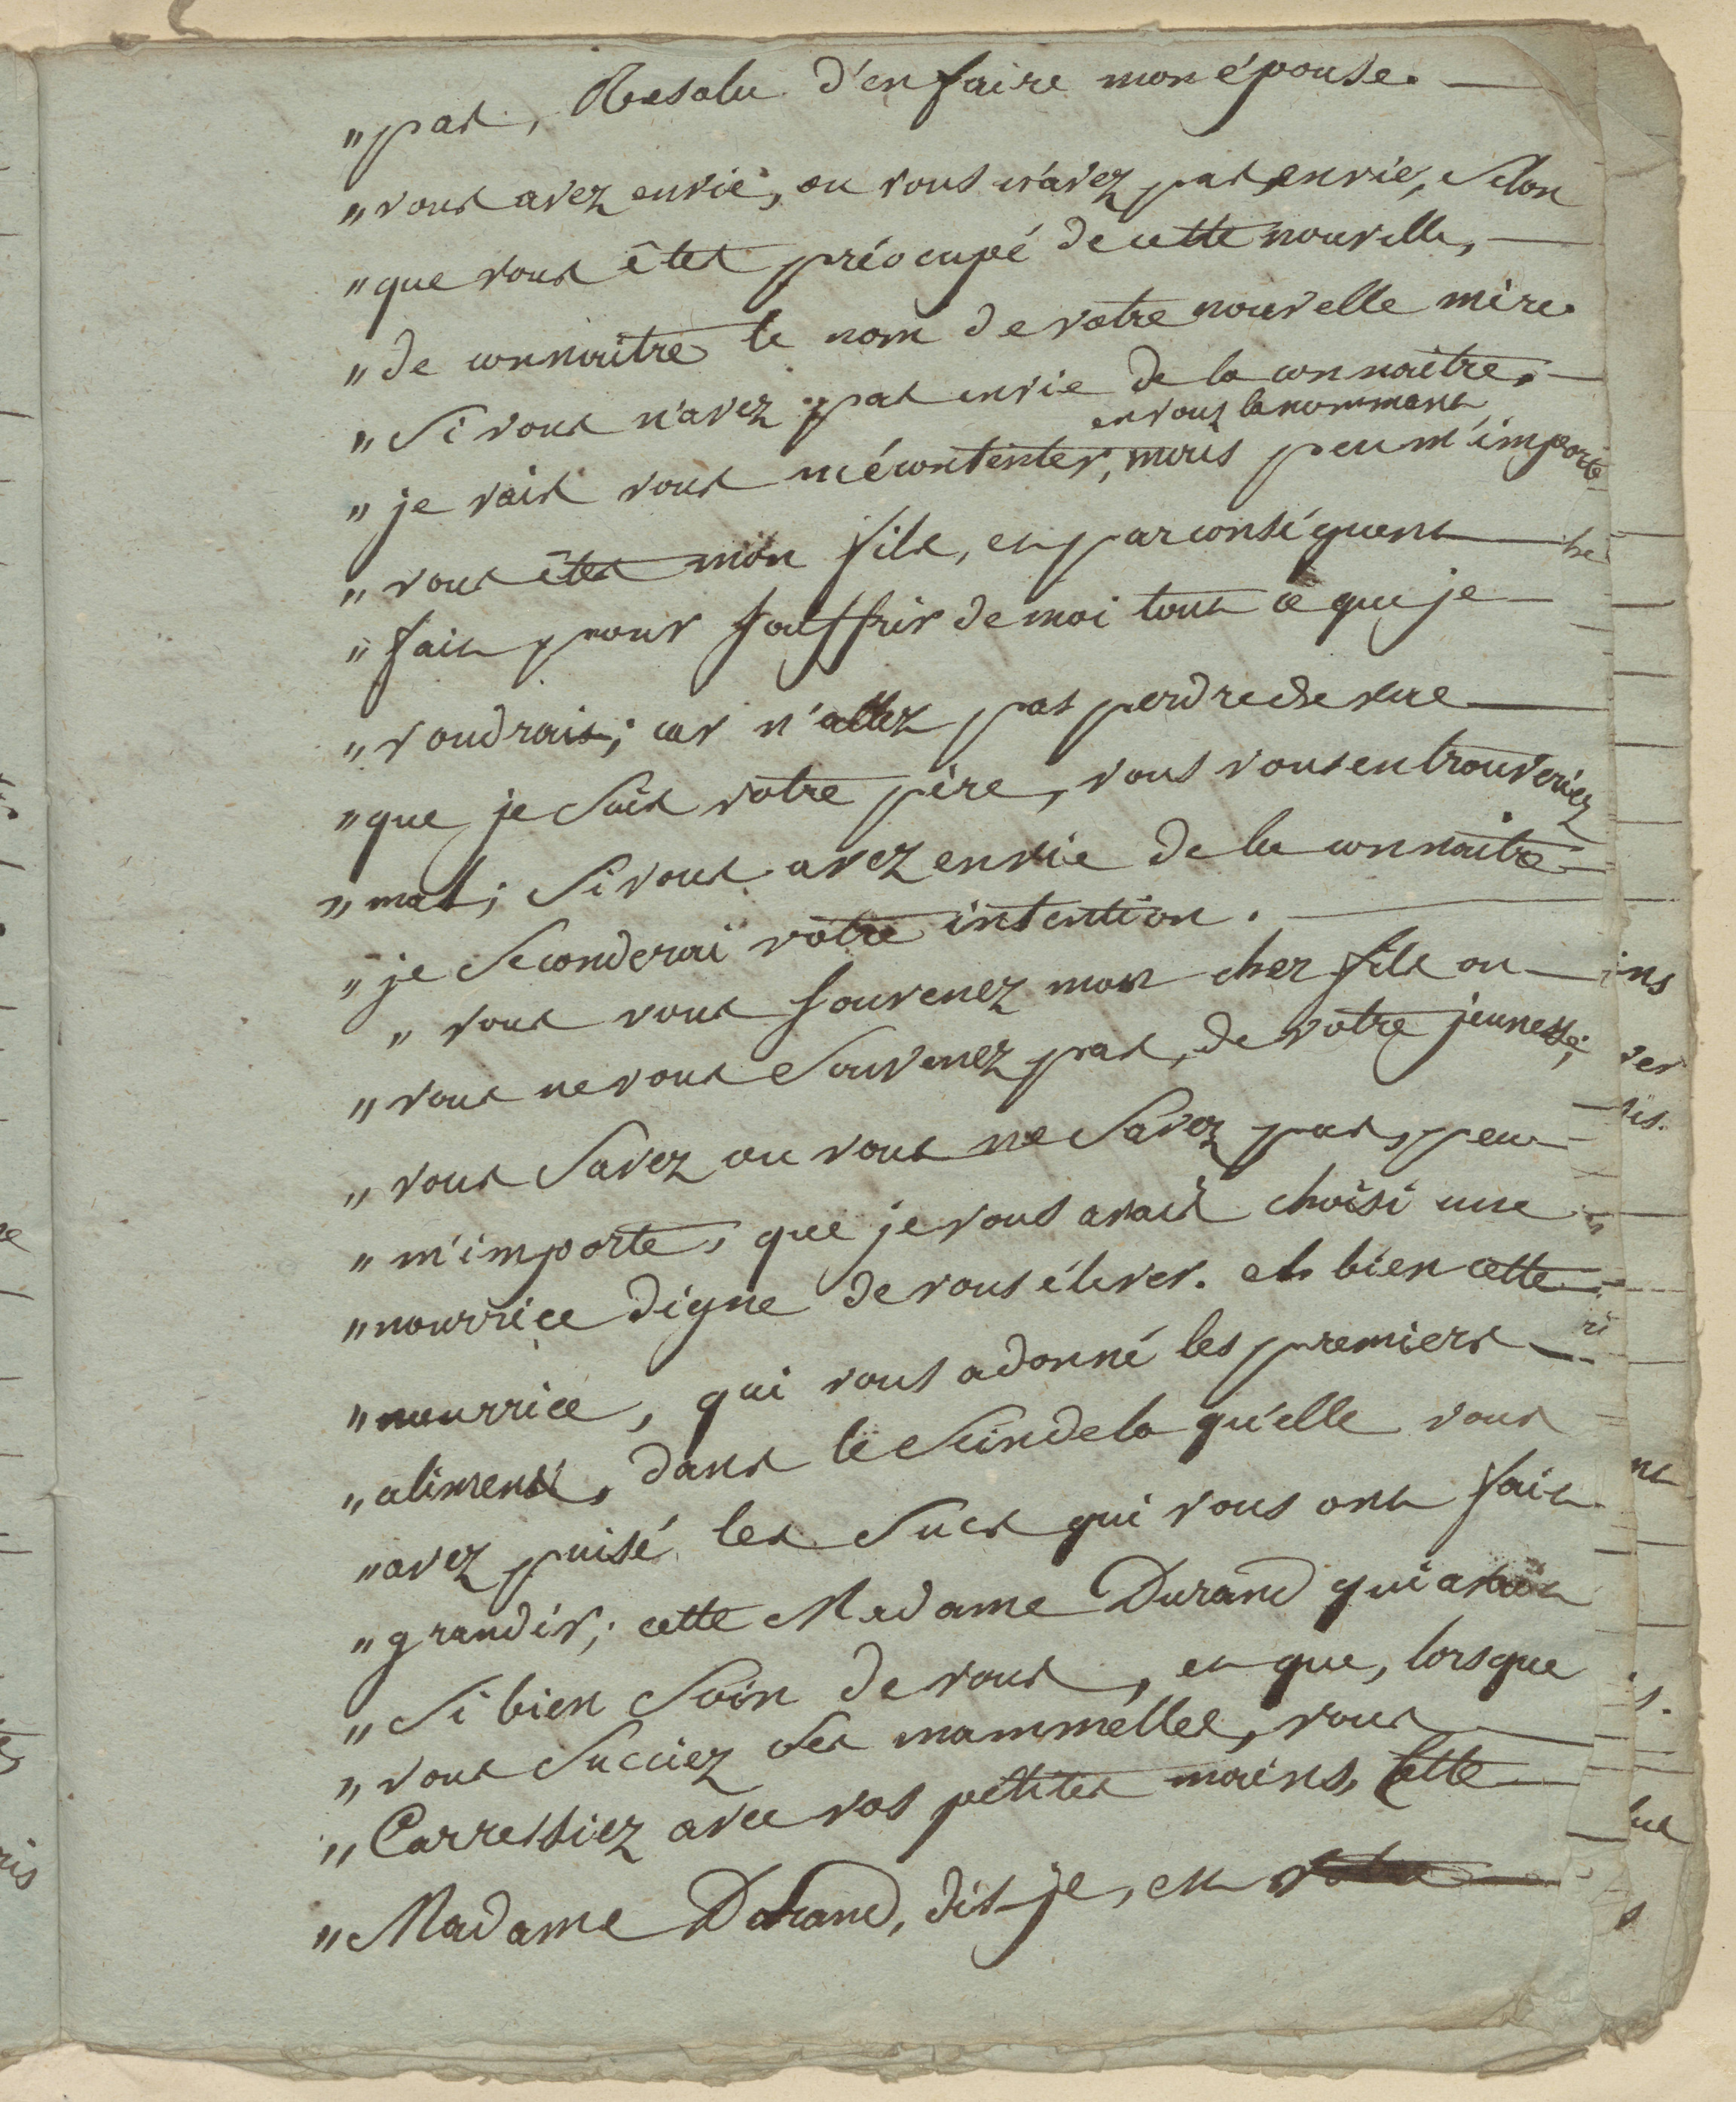 "pas, Resolu d'en faire mon épouse. —
"vous avez envie, ou vous n'avez pas envie, selon
"que vous êtes préocupé de cette nouvelle, —
"de connaitre le nom de votre nouvelle mère.
"Si vous n'avez pas envie de la connaitre, —
en vous la nommant
"je vais vous mécontenter, mais peu m'importe
"vous êtes mon fils, et par conséquent —
"fait pour souffrir de moi tout ce que je —
"voudrais; car n'allez pas perdre de vue —
"que je suis votre père, vous vous en trouveriez
"mal; Si vous avez envie de la connaitre —
"je seconderai votre intention. —
"vous vous souvenez mon cher fils ou —
"vous ne vous souvenez pas, de votre jeunesse;
"vous savez ou vous ne savez pas, peu —
"m'importe, que je vous avais choisi une
"nourrice digne de vous élever. eh bien cette —
"nourrice, qui vous a donné les premiers —
"aliments, dans le sein de la qu'elle vous
"avez puisé les sucs qui vous ont fait
"grandir; cette Madame Durand qui avait
"Si bien soin de vous, et que, lorsque
"vous succiez ses mammelles, vous —
"Carressiez avec vos petites mains, Cette —
"Madame Durand, dis-je, est —